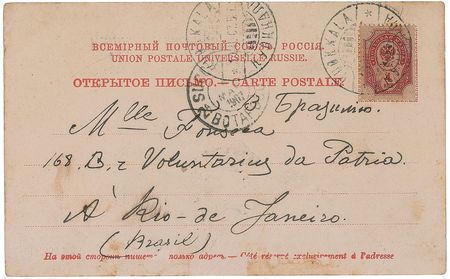 ВСЕМІРНЫЙ ПОЧТОВЫЙ СОЮЗЪ. РОССІЯ.
UNION POSTALE UNIVERSELLE. RUSSIE.
ОТКРЫТОЕ ПИСЬМО. — CARTE POSTALE.
KUOKKALA
BOTAF
1907
Бразилію.
Mlle Fonseca
168. B, r Voluntarius da Patria
A' Rio-de Janeiro.
(Brasil)
На этой сторонѣ пишется только адресъ. — Côté réservé exclusivement à l'adresse